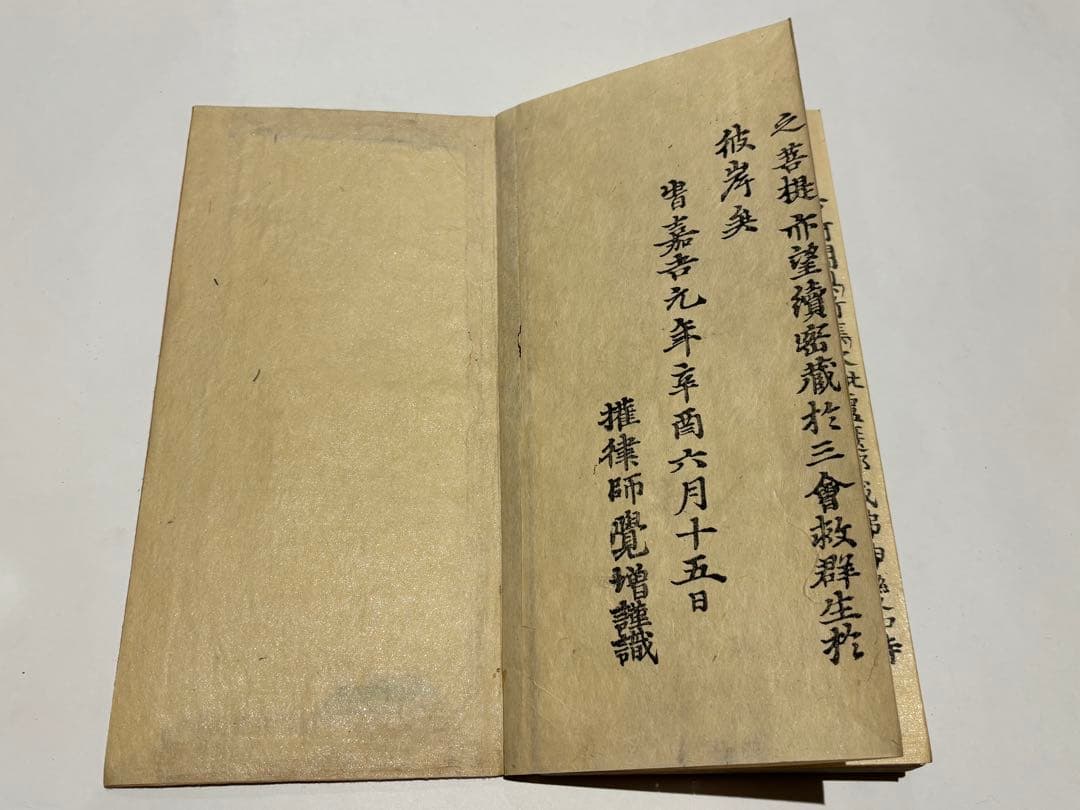 之菩提亦望續密藏於三會救群生於
彼岸矣
旹嘉吉元年辛酉六月十五日
擁律師覺增謹識